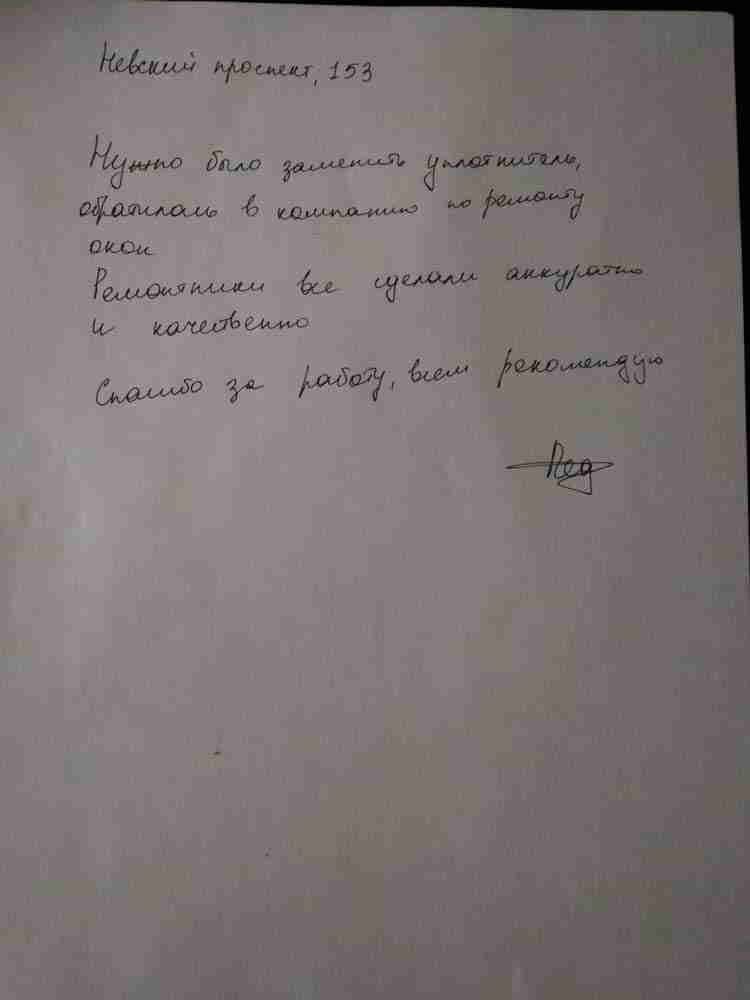 Невский проспект, 153
Нужно было заменить уплотнитель,
обратилась в компанию по ремонту
окон
Ремонтники все сделали аккуратно
и качественно
Спасибо за работу, всем рекомендую